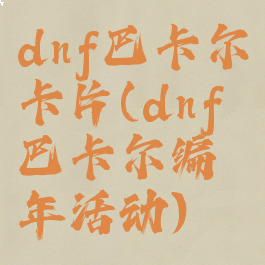 dnf巴卡尔
卡片(dnf
巴卡尔编
年活动)